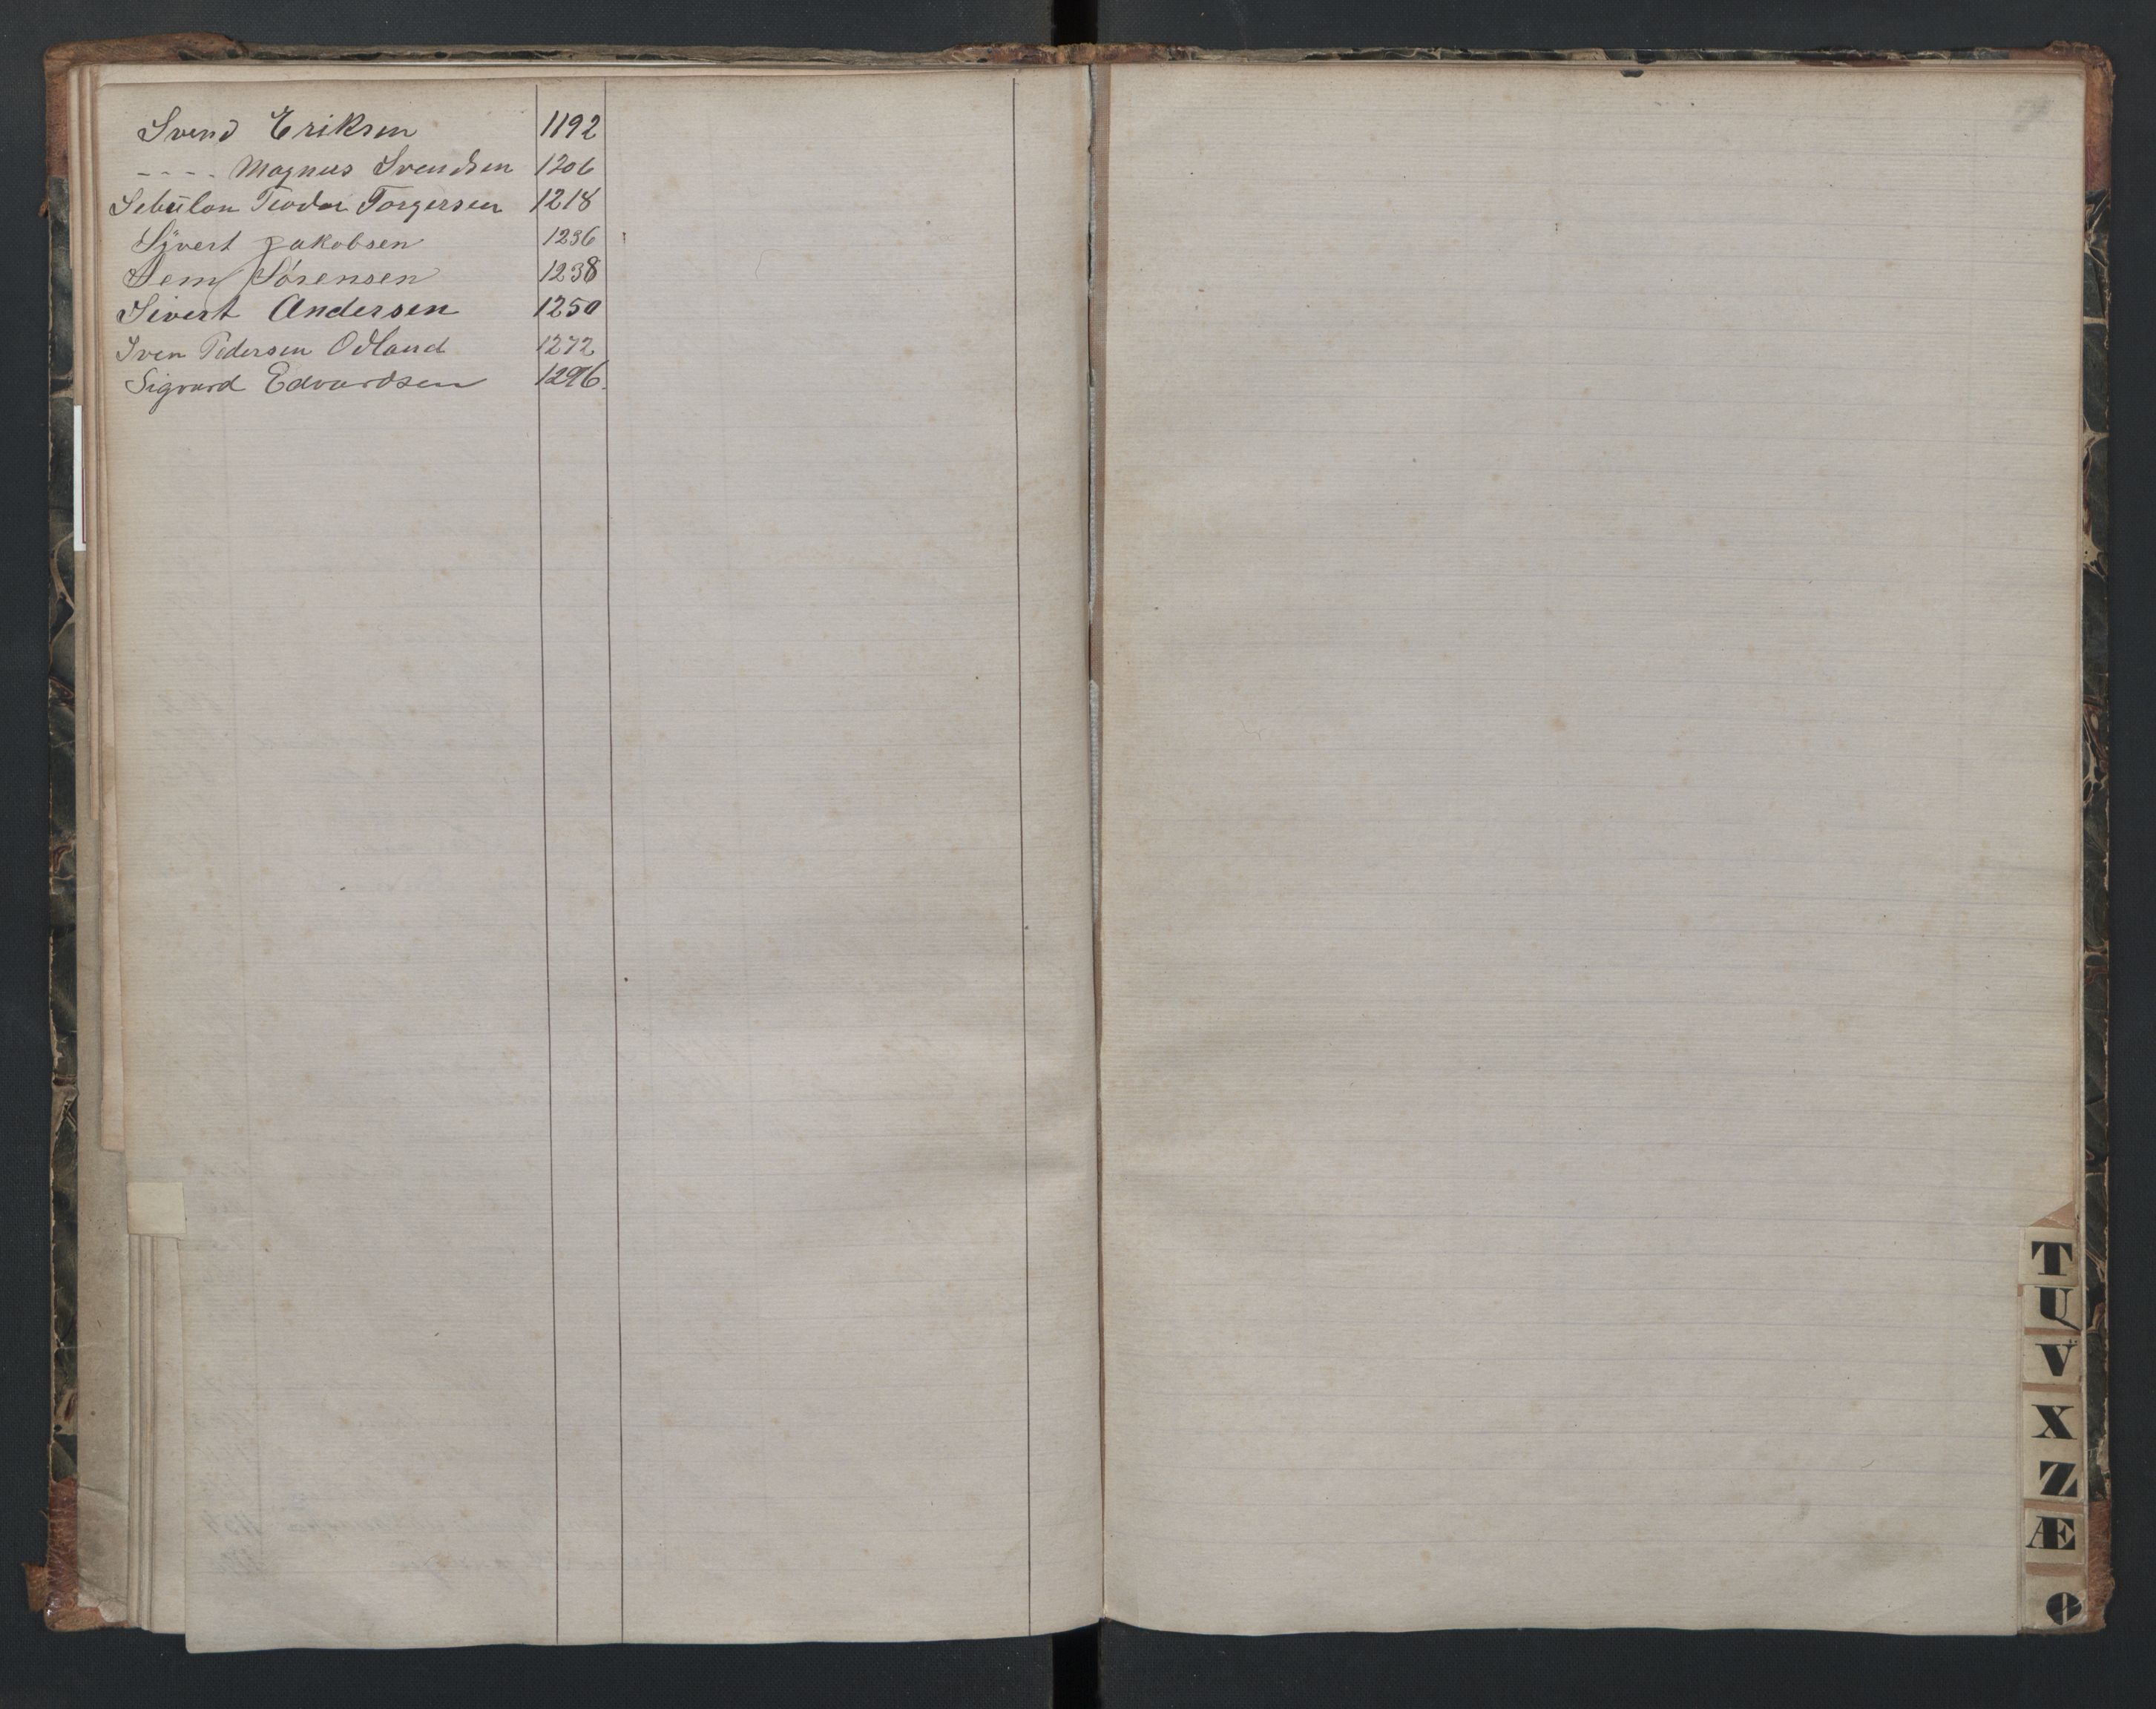 Svend Eriksen 1192
- - - - Magnus Svendsen 1206
Sebülon Teodor Torgersen 1218
Sÿvert Jakobsen 1236
Sem Sørensen 1238
Sivert Andersen 1250
Sven Pedersen Odland 1272
Sigvard Edvardsen 1296.
T
U
V
X
Z
Æ
Ø